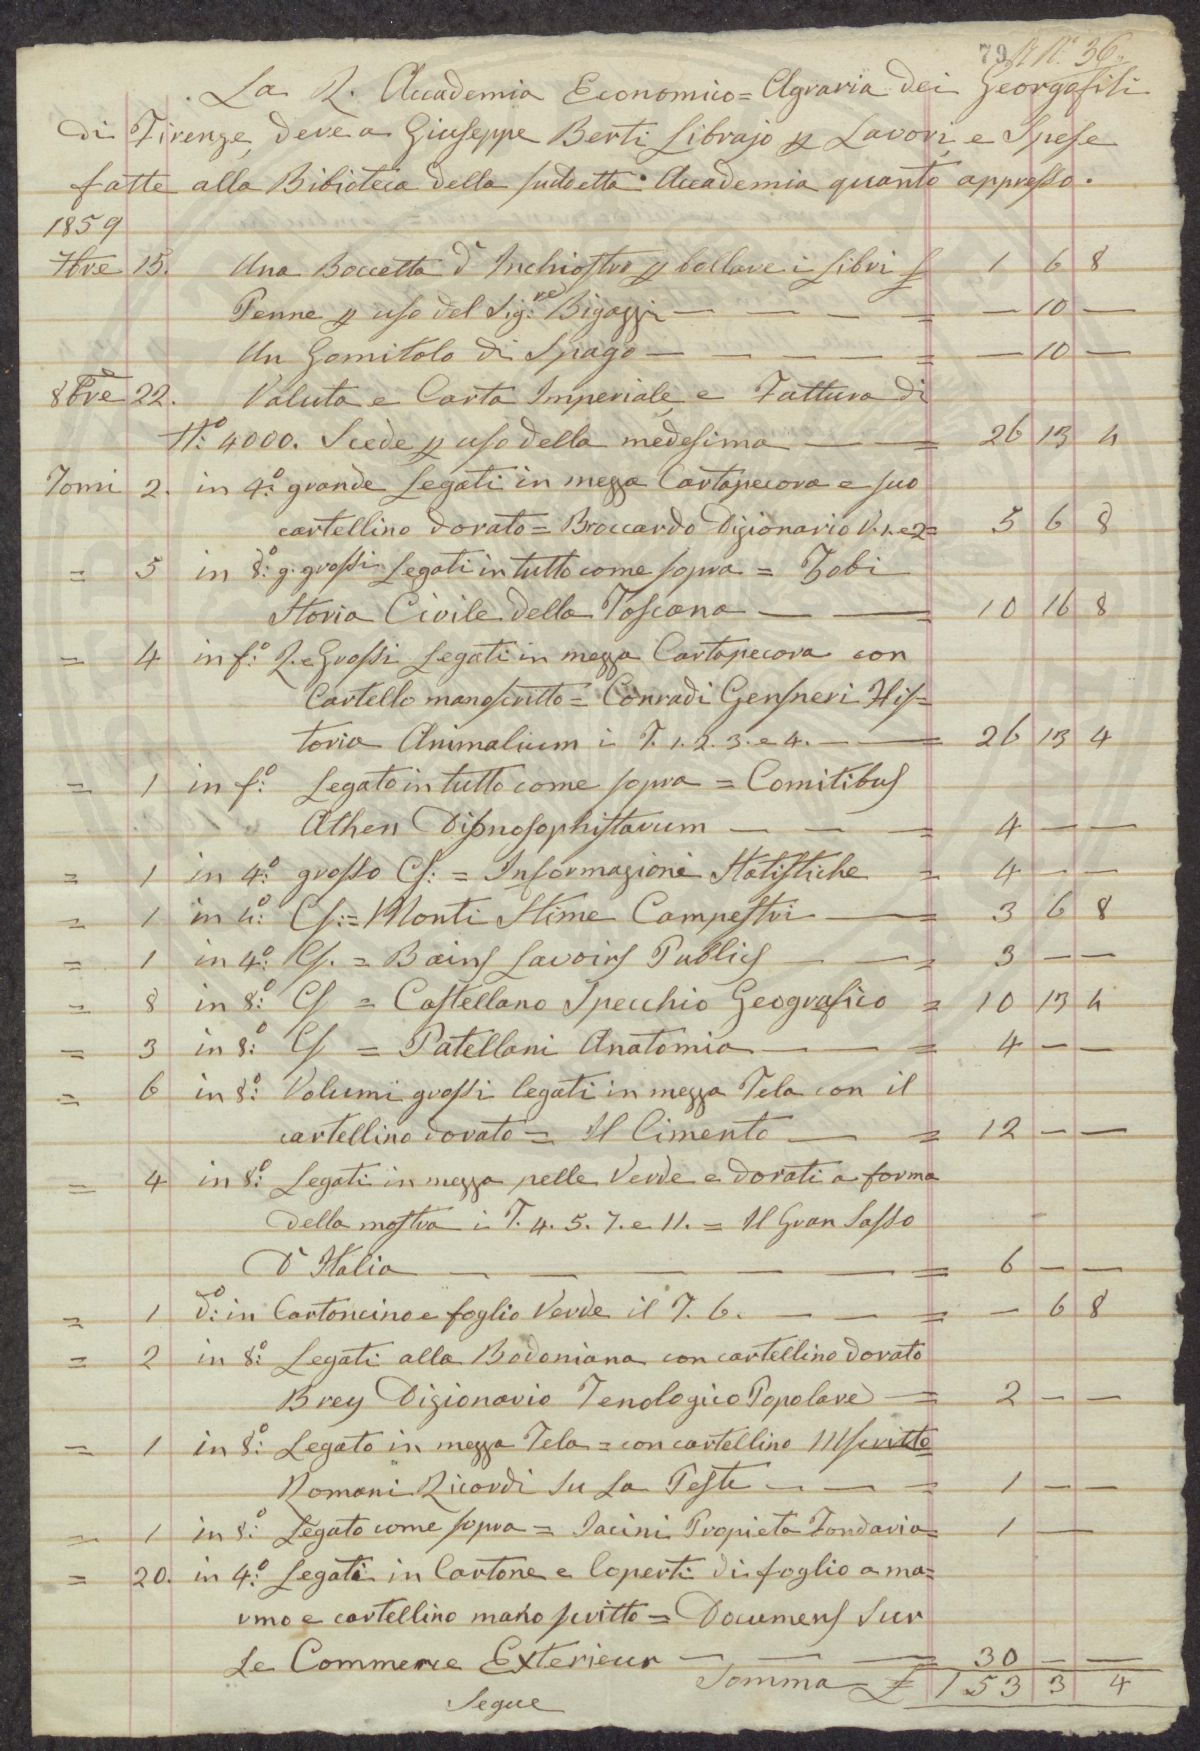 79 N.° 36.
La R. Accademia Economico= Agraria dei Georgofili
di Firenze, deve a Giuseppe Berti Librajo p Lavori, e Spese
fatte alla Bibioteca della suddetta Accademia quanto appresso.
1859
7bre 15. Una Boccetta d' Inchiostro p bollare i Libri £ 1 6 8
Penne p uso del Sig.re Bigazzi — — — — = — 10 —
Un Gomitolo di Spago — — — — — = — 10 —
8bre 22. Valuta e Carta Imperiale, e Fattura di
N.° 4000. Scede p uso della medesima — — = 26 13 4
Tomi 2. in 4.° grande Legati in mezza Cartapecora e suo
cartellino dorato = Broccardo Dizionario V. 1. e 2 = 5 6 8
= 5 in 8.° g. grossi Legati in tutto come sopra = Zobi
Storia Civile della Toscana — — = 10 16 8
= 4 in f.° R. e Grossi Legati in mezza Cartapecora con
Cartello manoscritto = Conradi Gensneri His=
toria Animalium i T. 1. 2. 3. e 4. — — = 26 13 4
= 1 in f.° Legato in tutto come sopra = Comitibus
Athen Dipnosophistarum — — — = 4 — —
= 1 in 4.° grosso Cs: = Informazioni Statistiche = 4 — —
= 1 in 4.° Cs: = Monti Stime Campestri — = 3 6 8
= 1 in 4.° Cs. = Bains Lavoirs Publics — — = 3 — —
= 8 in 8.° Cs = Castellano Specchio Geografico = 10 13 4
= 3 in 8.° Cs = Patellani Anatomia — — = 4 — —
= 6 in 8.° Volumi grossi legati in mezza Tela con il
cartellino dorato = Il Cimento — = 12 — —
= 4 in 8.° Legati in mezza pelle Verde e dorati a forma
della mostra i T. 4. 5. 7. e 11. = Il Gran Sasso
D' Italia — — — — — = 6 — —
= 1 d.° in Cartoncino e foglio Verde il T. 6. — — — = — 6 8
= 2 in 8.° Legati alla Bodoniana con cartellino dorato
Brey Dizionario Tenologico Popolare — = 2 — —
= 1 in 8.° Legato in mezza Tela = con cartellino Mscritto
Romani Ricordi Su La Peste — — — = 1 — —
= 1 in 8.° Legato come sopra = Jacini Propieta Fondaria = 1 —
= 20. in 4.° Legati in Cartone e Coperti di foglio a ma=
rmo e cartellino mano scritto = Documens Sur
Le Commerce Exterieur — — — = 30 — —
Somma £ 153 3 4
Segue